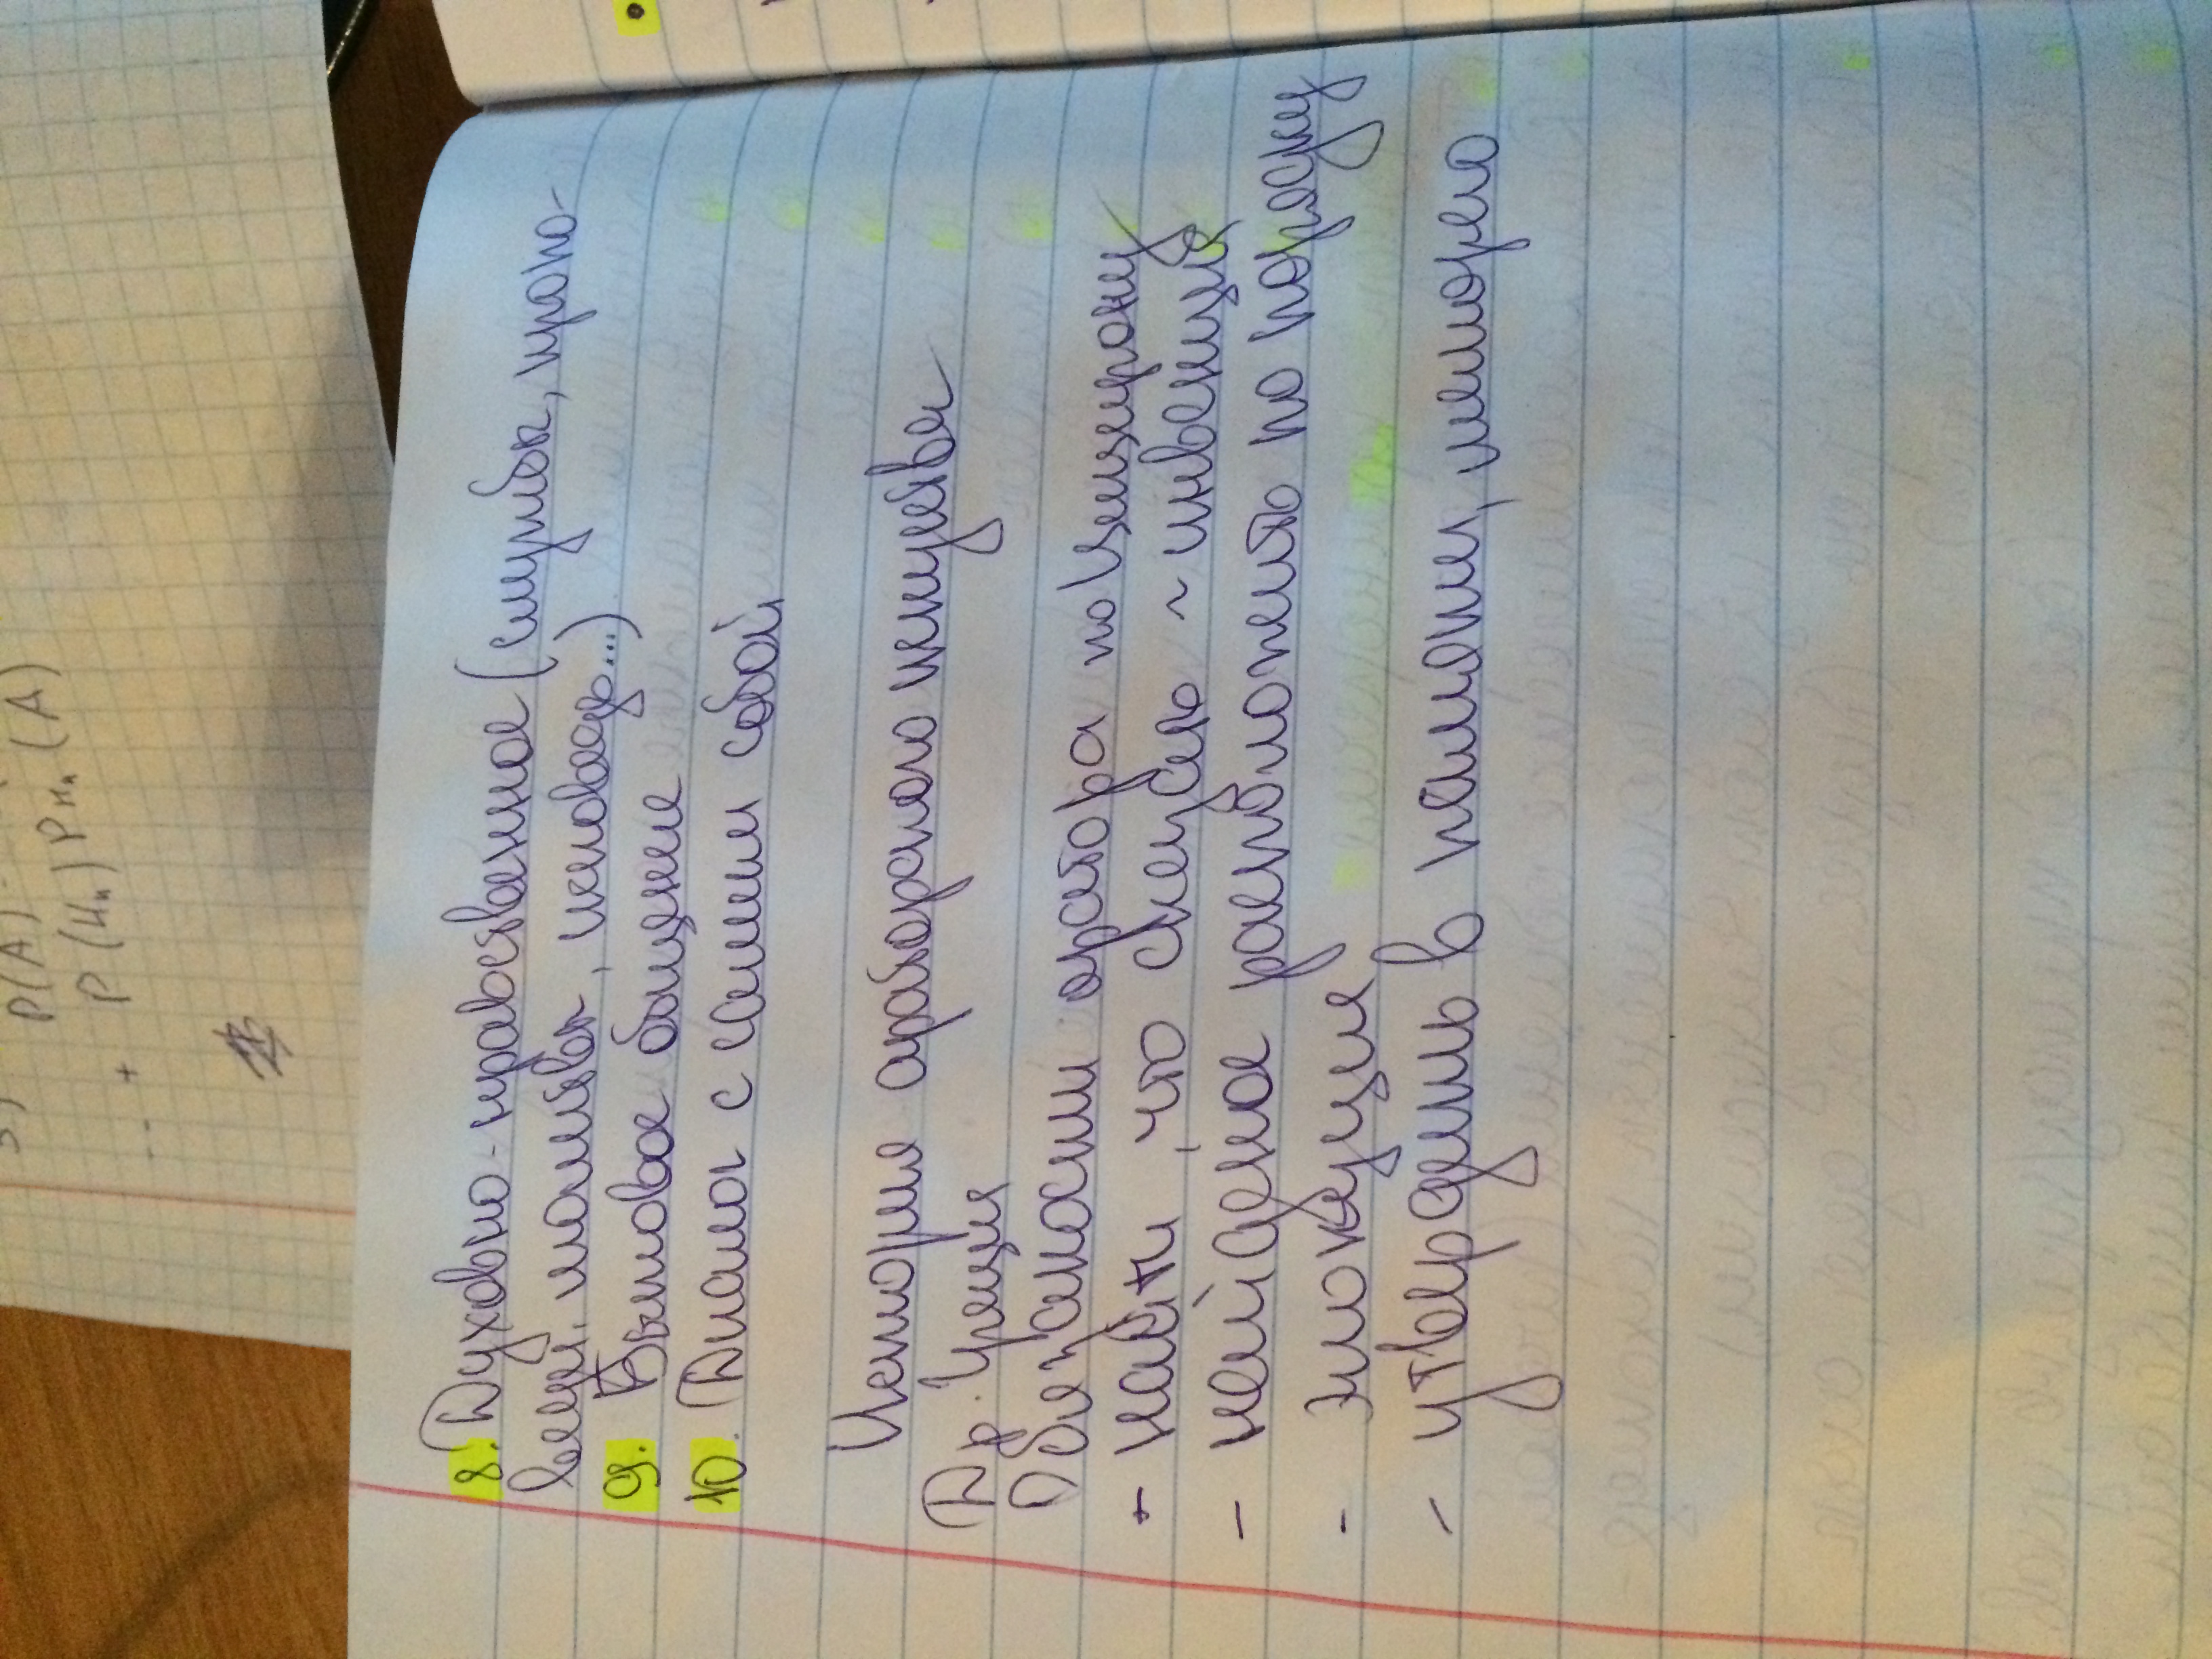 P(A)
-- + P(Hn) PHn (A)
8. Духовно-нравственное (службы, пропо-
веди, молитвы, исповедь...)
9. Бытовое общение
10. Диалог с самим собой
История ораторского искуства
Др. Греция
Обязаности оратора по Цицирону
- найти, что сказать ~ инвенция
- найденое расположить по порядку
- элокуция
- утвердить в памяти,